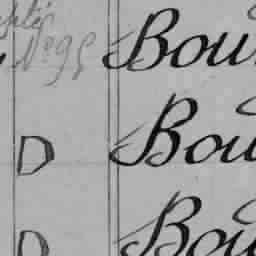 N° 95 Bou
D Bou
D Bou